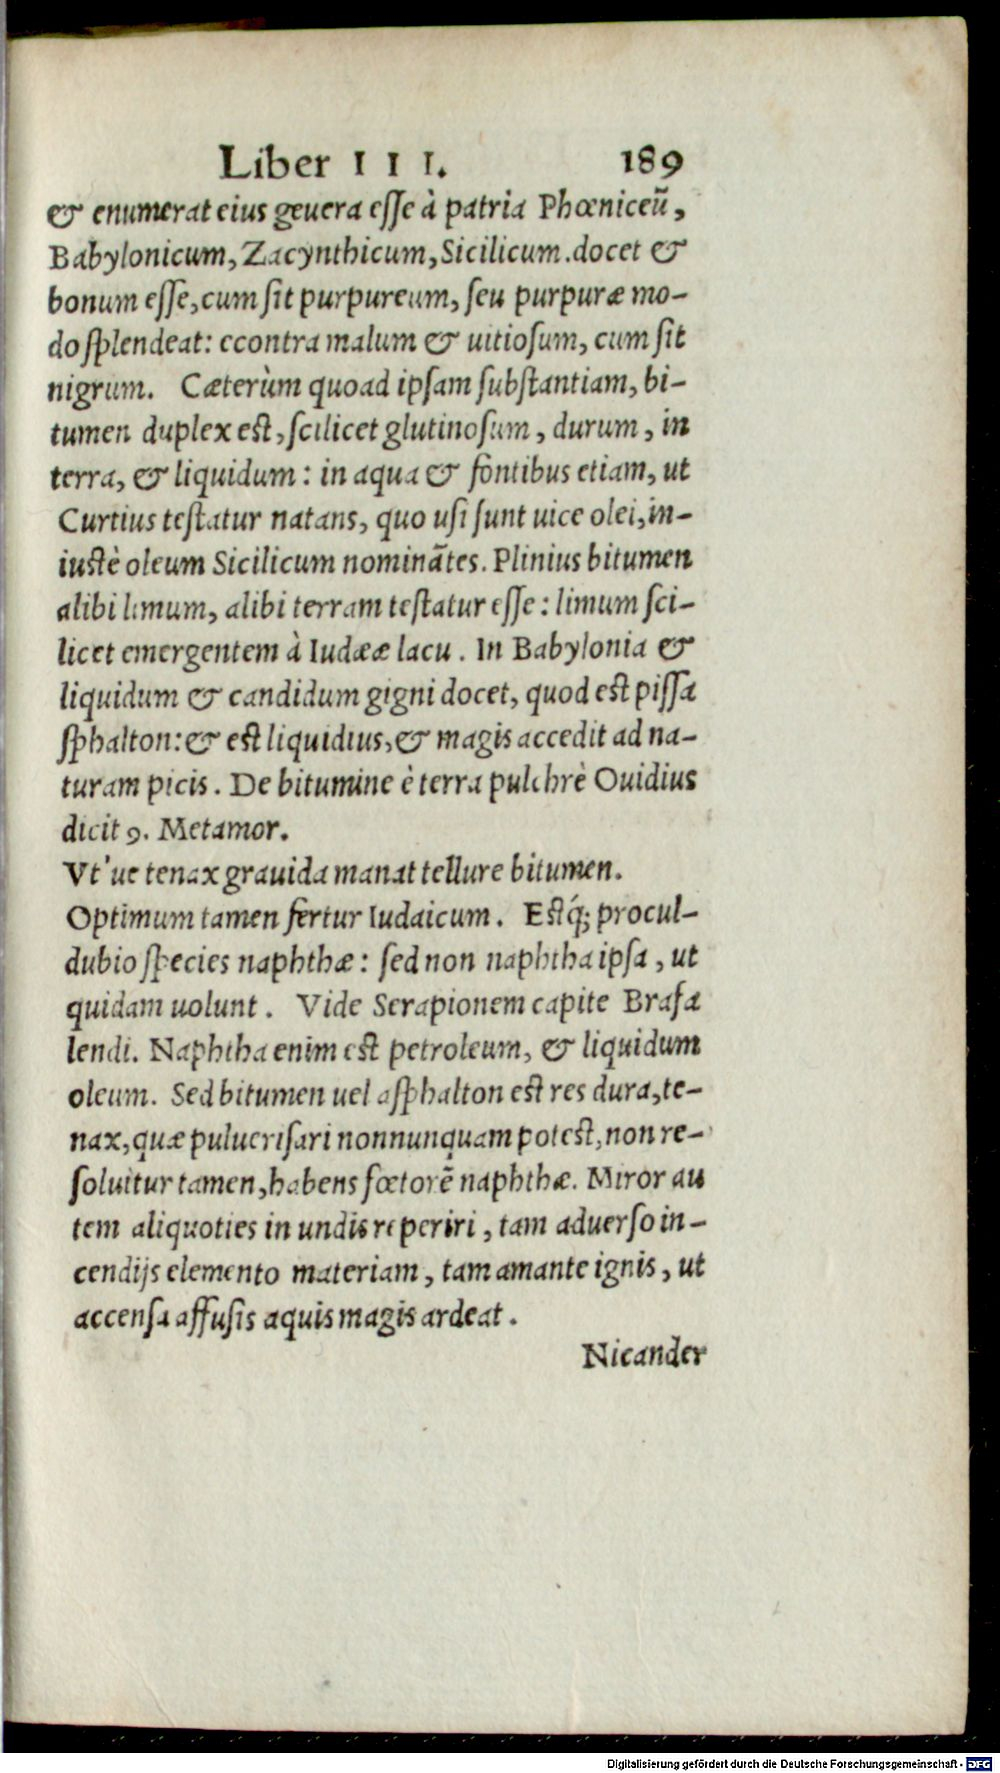 Liber III. 189
& enumerat eius geuera esse à patria Phœniceũ,
Babylonicum, Zacynthicum, Sicilicum. docet &
bonum esse, cum sit purpureum, seu purpuræ mo-
do splendeat: ccontra malum & uitiosum, cum sit
nigrum. Cæterùm quoad ipsam substantiam, bi-
tumen duplex est, scilicet glutinosum, durum, in
terra, & liquidum: in aqua & fontibus etiam, ut
Curtius testatur natans, quo usi sunt uice olei, in-
iustè oleum Sicilicum nominãtes. Plinius bitumen
alibi limum, alibi terram testatur esse: limum sci-
licet emergentem à Iudææ lacu. In Babylonia &
liquidum & candidum gigni docet, quod est pissa
sphalton: & est liquidius, & magis accedit ad na-
turam picis. De bitumine è terra pulchrè Ouidius
dicit 9. Metamor.
Vt'ue tenax grauida manat tellure bitumen.
Optimum tamen fertur Iudaicum. Estq́; procul-
dubio species naphthæ: sed non naphtha ipsa, ut
quidam uolunt. Vide Serapionem capite Brafa
lendi. Naphtha enim est petroleum, & liquidum
oleum. Sed bitumen uel asphalton est res dura, te-
nax, quæ puluerisari nonnunquam potest, non re-
soluitur tamen, habens fœtorẽ naphthæ. Miror au
tem aliquoties in undis reperiri, tam aduerso in-
cendijs elemento materiam, tam amante ignis, ut
accensa affusis aquis magis ardeat.
Nicander
Digitalisierung gefördert durch die Deutsche Forschungsgemeinschaft - DFG